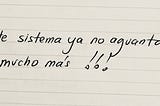 de sistema ya no aguanto
mucho más !!!